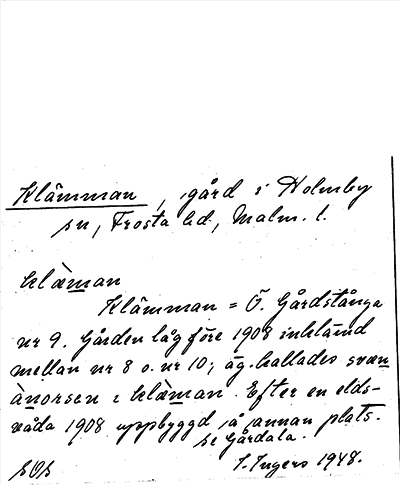 Klämman, gård i Holmby
sn, Frosta hd, Malm. l.
klæman
Klämman = Ö. Gårdstånga
nr 9. Gården låg före 1908 inklämd
mellan nr 8 o. nr 10; äg. kallades svæn
ànorsen i klæman. Efter en elds-
våda 1908 uppbyggd på annan plats.
se Gårdala.
I. Ingers 1948.